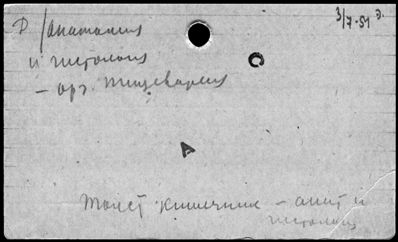 3/7-51 э.
Д/анатомия
и гистология
– орг. пищеварения
С
А
толст кишечник – анат и
гистология